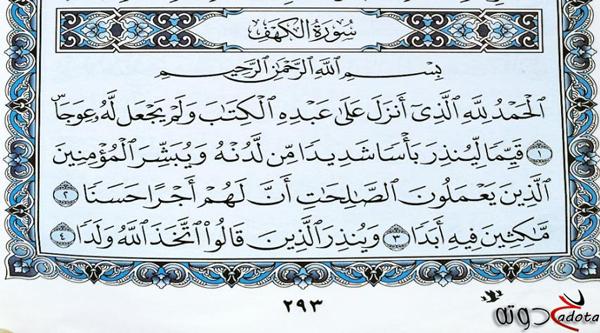 سُورَةُ الْكَهْفِ
بِسْمِ ٱللَّهِ ٱلرَّحْمَٰنِ ٱلرَّحِيمِ
ٱلْحَمْدُ لِلَّهِ ٱلَّذِىٓ أَنزَلَ عَلَىٰ عَبْدِهِ ٱلْكِتَٰبَ وَلَمْ يَجْعَل لَّهُۥ عِوَجَاۜ
١ قَيِّمًا لِّيُنذِرَ بَأْسًا شَدِيدًا مِّن لَّدُنْهُ وَيُبَشِّرَ ٱلْمُؤْمِنِينَ
ٱلَّذِينَ يَعْمَلُونَ ٱلصَّٰلِحَٰتِ أَنَّ لَهُمْ أَجْرًا حَسَنًا ٢
مَّٰكِثِينَ فِيهِ أَبَدًا ٣ وَيُنذِرَ ٱلَّذِينَ قَالُوا۟ ٱتَّخَذَ ٱللَّهُ وَلَدًا ٤
٢٩٣
حدوته
adota